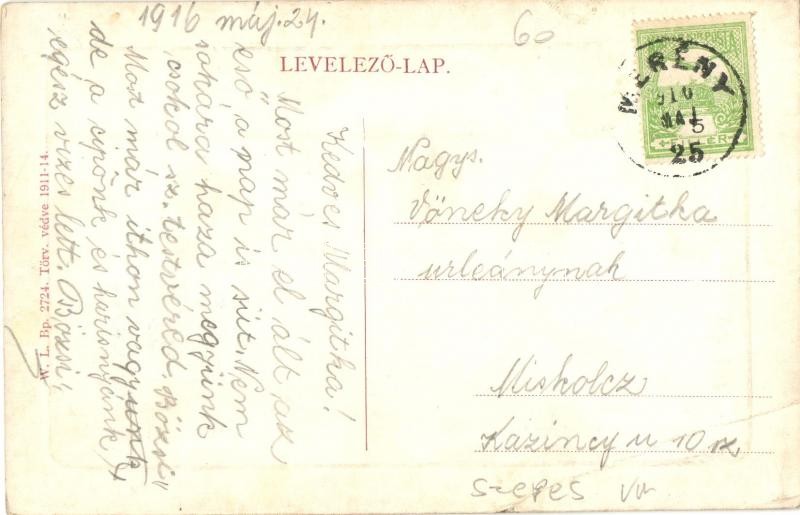 1916 máj. 24.
60
LEVELEZŐ-LAP.
Kedves Margitka!
"Most már el ált az
eső, a nap is süt. Nem
sokára haza megyünk
csokol sz. testvéred, Bözsi"
Most már ithon vagyunk
de a cipönk és harisnyánk,
egész vizes lett. Bözsi"
W. L. Bp. 2724. Törv. védve 1911-14.
MERÉNY
916
MÁJ
25
Nagys.
Vöneky Margitka
urleánynak
Miskolcz
Kazinczy u 10 sz.
Szepes vm